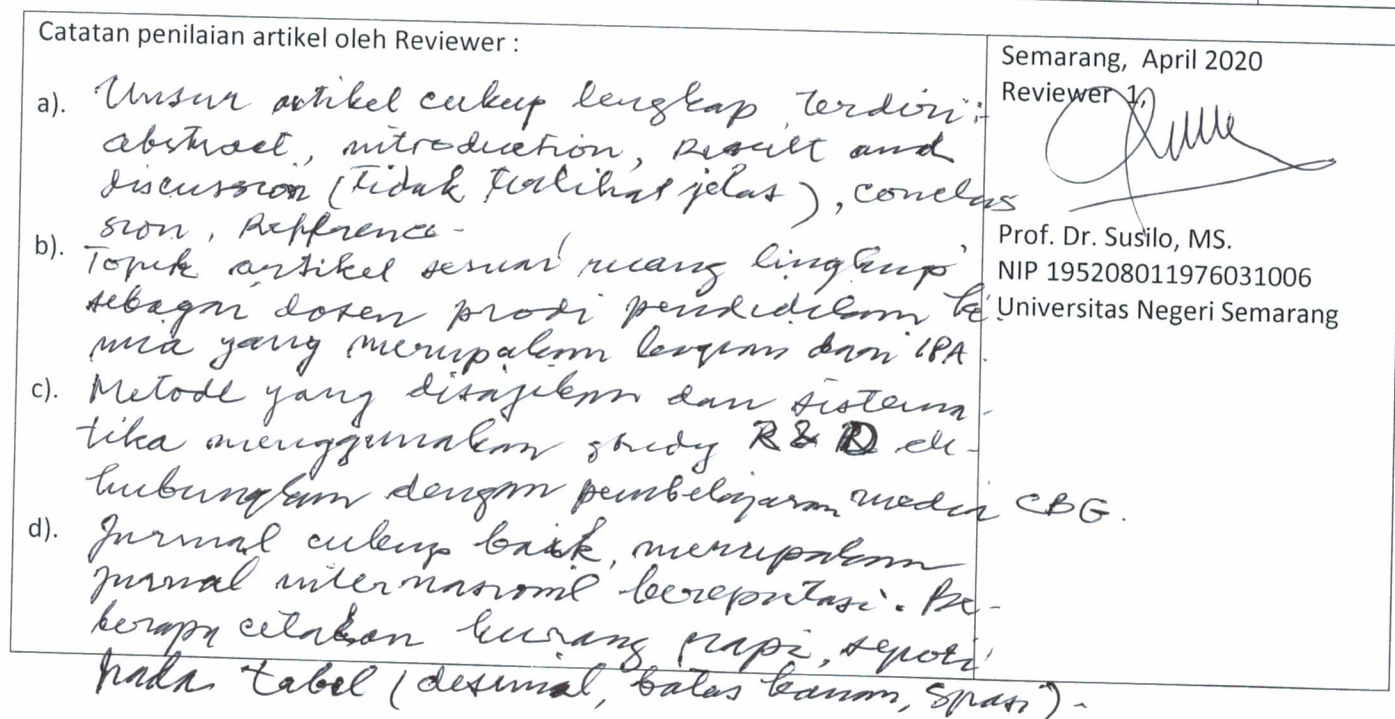 Catatan penilaian artikel oleh Reviewer :
a). Unsur artikel cukup lengkap, terdiri :
abstract, introduction, Result and
discussion (Tidak terlihat jelas), conclus
sion, Refference.
b). Topik artikel sesuai ruang lingkup
sebagai dosen prodi pendidikan ki
mia yang merupakan bagian dari IPA.
c). Metode yang disajikan dan sistema-
tika menggunakan study R & D di-
hubungkan dengan pembelajaran media CBG.
d). Jurnal cukup baik, merupakan
jurnal internasional bereputasi. Be-
berapa cetakan kurang rapi, seperti
pada tabel (desimal, batas kanan, spasi).
Semarang, April 2020
Reviewer 1,
Prof. Dr. Susilo, MS.
NIP 195208011976031006
Universitas Negeri Semarang